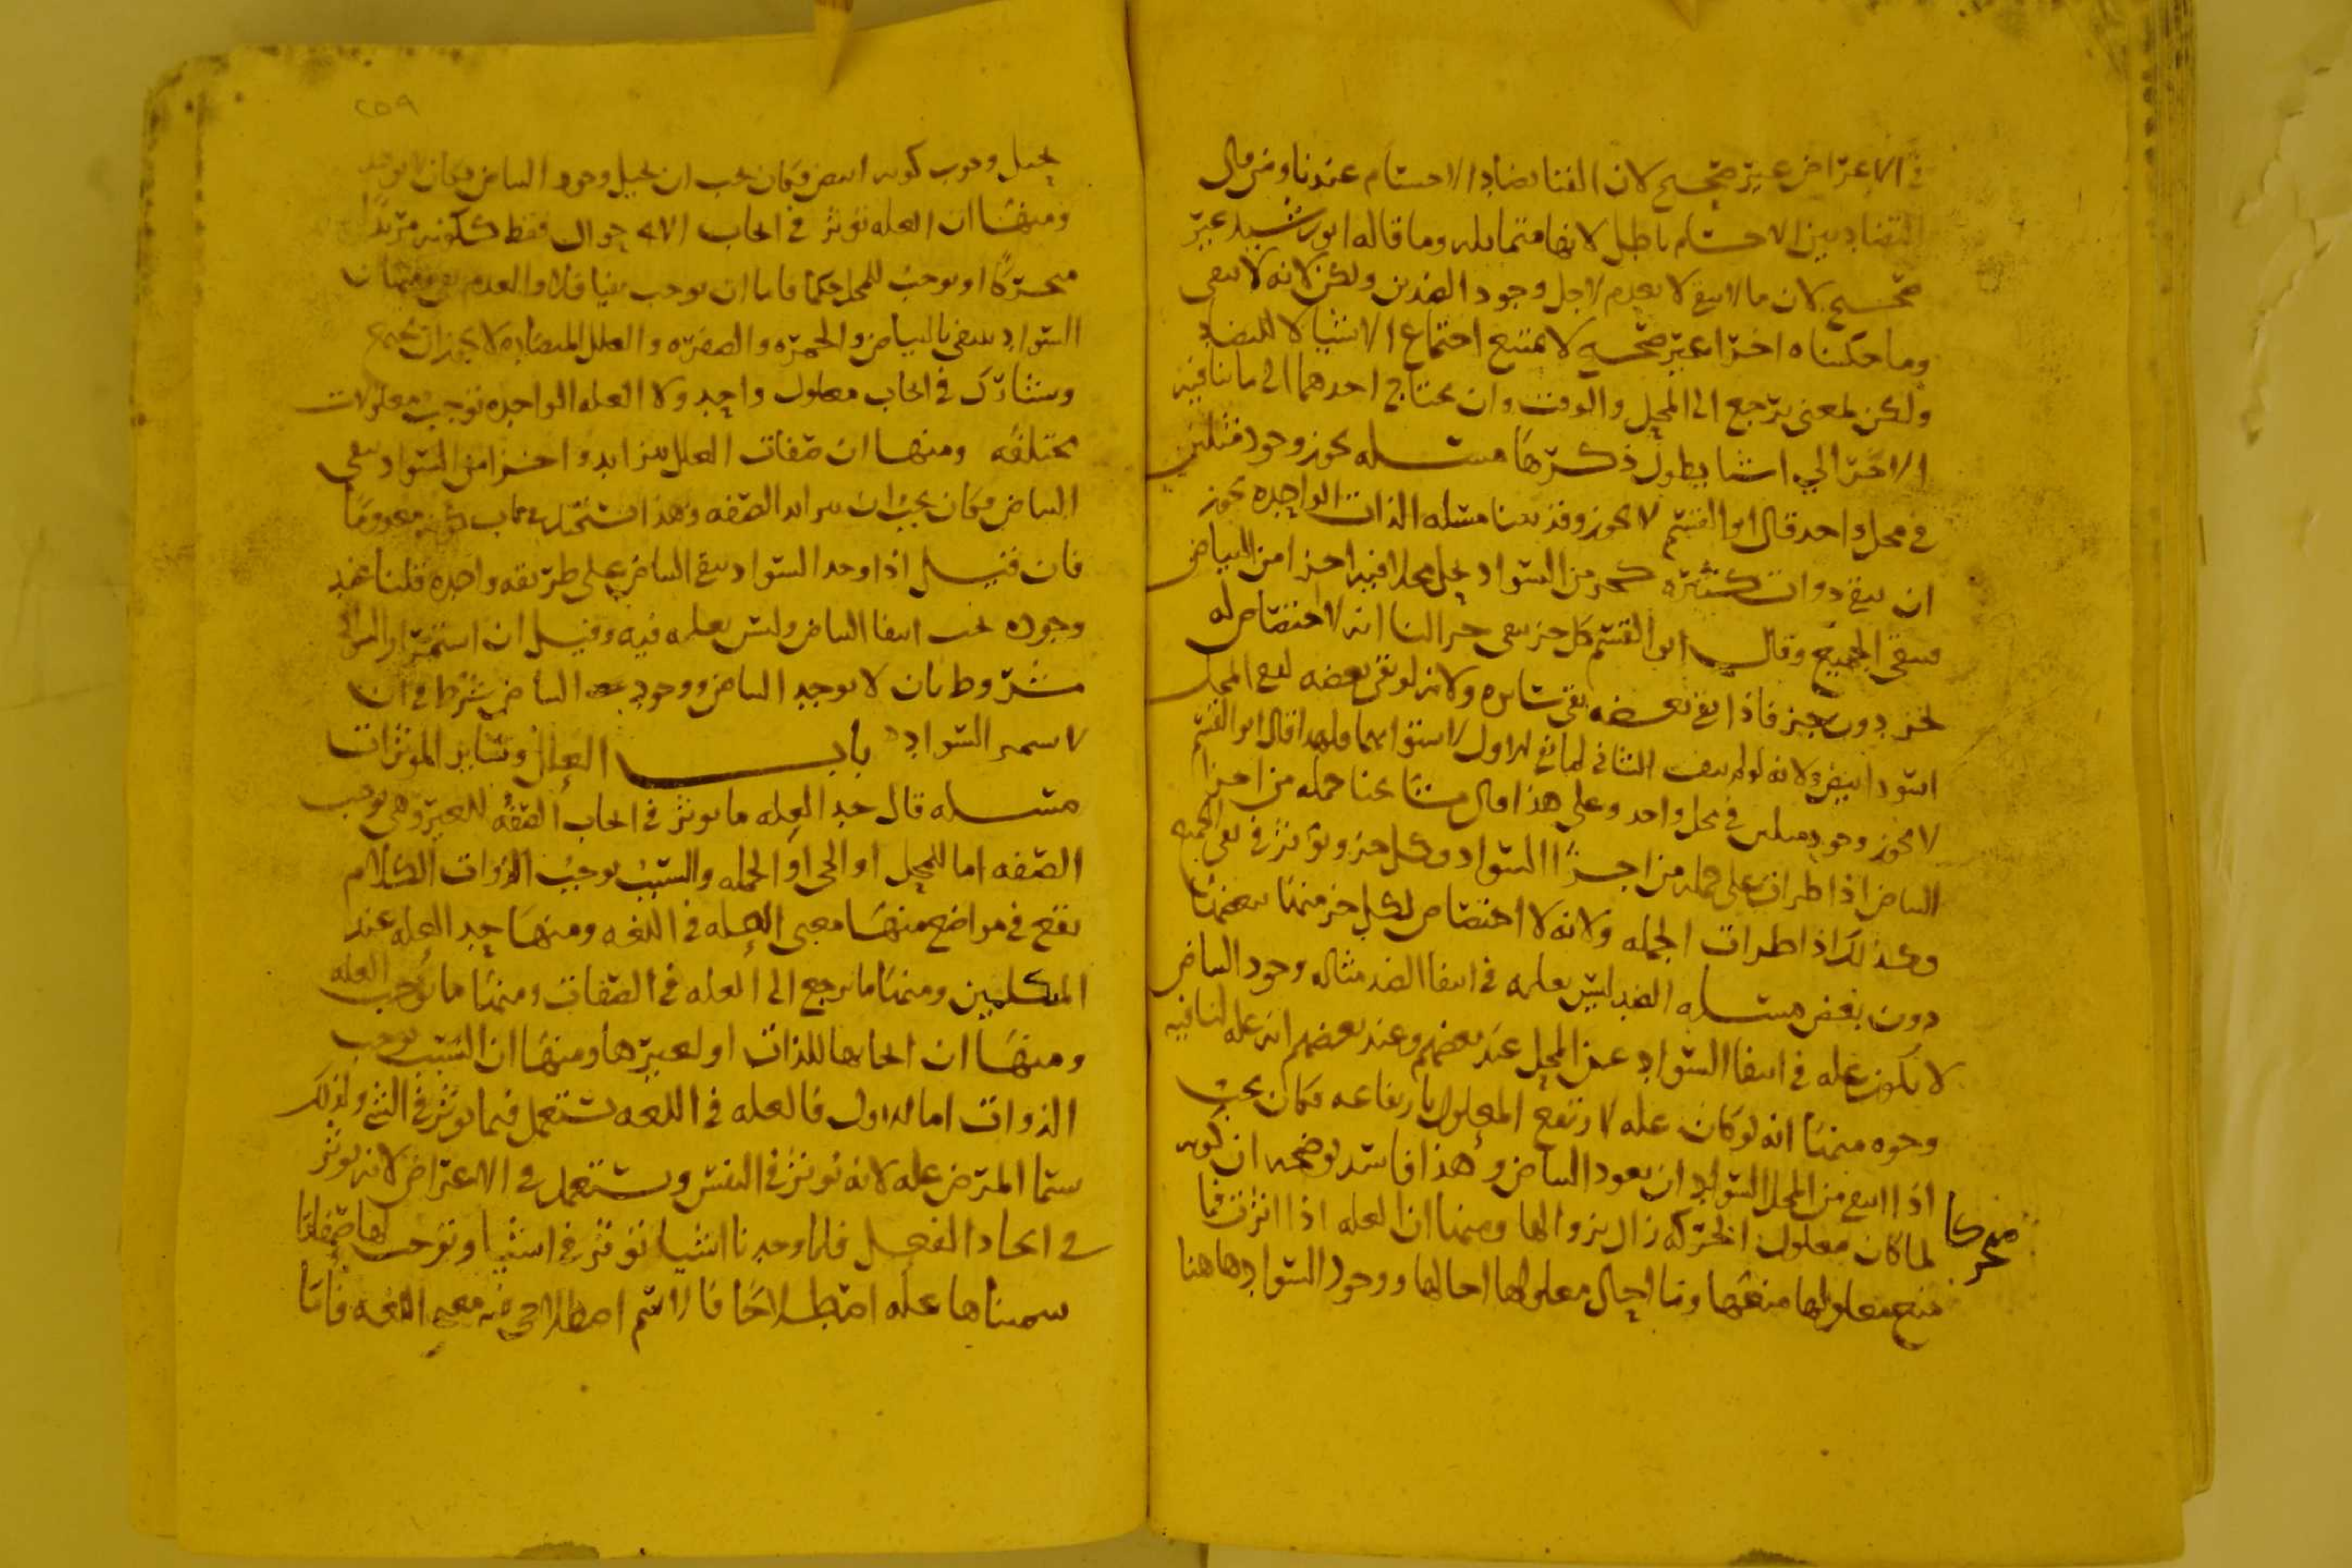 في الاعتراض غير صحيح لان الفنا يضاد الاجسام عندنا ومن قال
التضاد بين الاجسام باطل لانها متماثله وما قاله ابو رشيد غير
صحيح لان ما انتفى لا يعدم لاجل وجود الضدين ولكن لانه لا يبقى
وما حكيناه اخرا غير صحيح لا يمتنع اجتماع الاشيا لا للتضاد
ولكن لمعنى يرجع الى المحل والوقت وان يحتاج احدهما الى ما ينافيه
الاخر الى اشيا يطول ذكرها مسله يجوز وجود مثلين
في محل واحد قال ابو القسم لا يجوز وقد بينا مسله الذات الواحده يجوز
ان ينفي ذوات كثيره كجز من السواد يحل محلا فيه اجزا من البياض
فينفي الجميع وقال ابو القسم كل جز ينفي جزا لنا انه لا اختصاص له
بجز دون جز فاذا نفى بعضه نفى سايره ولانه لو نفى بعضه لبقي المحل
اسود ابيض ولانه لو لم ينف الثاني لما نفى الاول لاستوايهما ولهذا قال ابو القسم
لا يجوز وجود مثلين في محل واحد وعلى هذا قال مشايخنا جمله من اجزا
البياض اذا طرات على جمله من اجزا السواد فكل جز ويوثر في نفي الجميع
وكذلك اذا طرات الجمله ولانه لا اختصاص لكل جز منها ببعضها
دون بعض مسله الضد ليس بعله في انتفا الضد مثاله وجود البياض
لا يكون عله في انتفا السواد عن المحل عند بعضهم وعند بعضهم انه عله لنا فيه
وجوه منها انه لو كان عله لارتفع المعلول بارتفاعه فكان يجب
اذا انتفى من المحل السواد ان يعود البياض وهذا فاسد يوضحه ان كونه
متحركا
لما كان معلول الحركه زال بزوالها ومنها ان العله اذا اثرت فما
منع معلولها منعها وما احال معلولها احالها ووجود السواد هاهنا
٢٥٩
يحيل وجوب كونه ابيض فكان يجب ان يحيل وجود البياض فكان لا يوجد
ومنها ان العله توثر في ايجاب الاحوال فقط ككونه مريدا
متحركا او يوجب للمحل حكما فاما ان يوجب نفيا فلا والعدم نفي ومنها ان
السواد ينتفي بالبياض والحمره والصفره والعلل المتضاده لا يجوز ان تجتمع
وتشترك في ايجاب معلول واحد ولا العله الواحده توجب معلولات
مختلفه ومنها ان صفات العلل تتزايد واجزا من السواد تنفي
البياض فكان يجب ان يتزايد الصفه وهذا يستحيل في باب كونه معدوما
فان قيل اذا وجد السواد ينتفي البياض على طريقه واحده قلنا عند
وجوده يجب انتفا البياض وليس بعله فيه وقيل ان استمرار السواد
مشروط بان لا يوجد البياض ووجود البياض شرط في ان
لا يستمر السواد باب العلل وساير الموثرات
مسله قال حد العله ما يوثر في ايجاب الصفه للغير وهي توجب
الصفه اما للمحل او الحي او الجمله والسبب يوجب الذوات الكلام
يقع في مواضع منها معنى العله في اللغه ومنها حد العله عند
المتكلمين ومنها ما يرجع الى العله في الصفات ومنها ما يوجب العله
ومنها ان ايجابها للذات او لغيرها ومنها ان السبب يوجب
الذوات اما الاول فالعله في اللغه تستعمل فيما يوثر في الشي ولذلك
سما المرض عله لانه يوثر في النفس ويستعمل في الاعتراض لانه يوثر
في ايجاد الفعل فلما وجدنا اشيا توثر في اشيا وتوجب لها صفاتا
سميناها عله اصطلاحا فالاسم اصطلاحي فيه معنى اللغه فاما